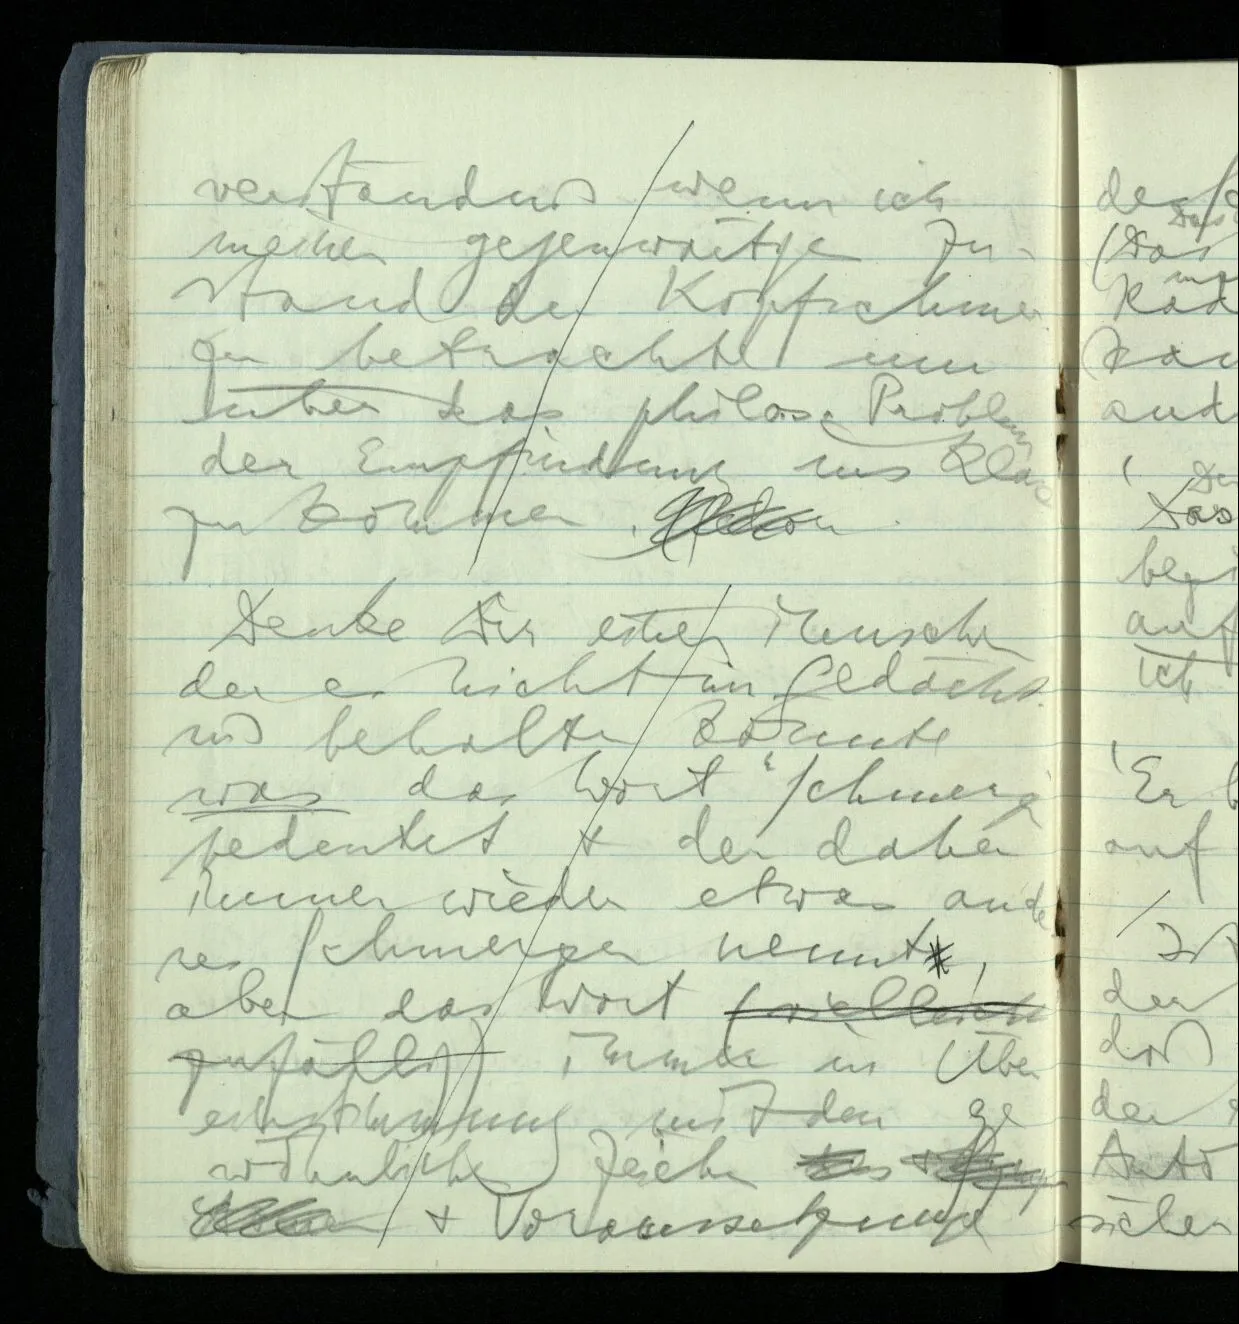 verständnis wenn ich
meinen gegenwärtigen Zu-
stand der Kopfschmer
zen betrachte um
über das philos. Problem
der Empfindung ins Klare
zu kommen.
Denke Dir einen Menschen
der es nicht im Gedächt-
nis behalten könnte
was das Wort "Schmerz
bedeutet & der daher
immer wieder etwas ande
res Schmerzen nennt,
aber das Wort (vielleicht
zufällig) immer in Über
einstimmung mit den ge
wöhnlichen Zeichen
& Voraussetzungen
der
(Das
auf
ich
Er b
auf
der
daß
der